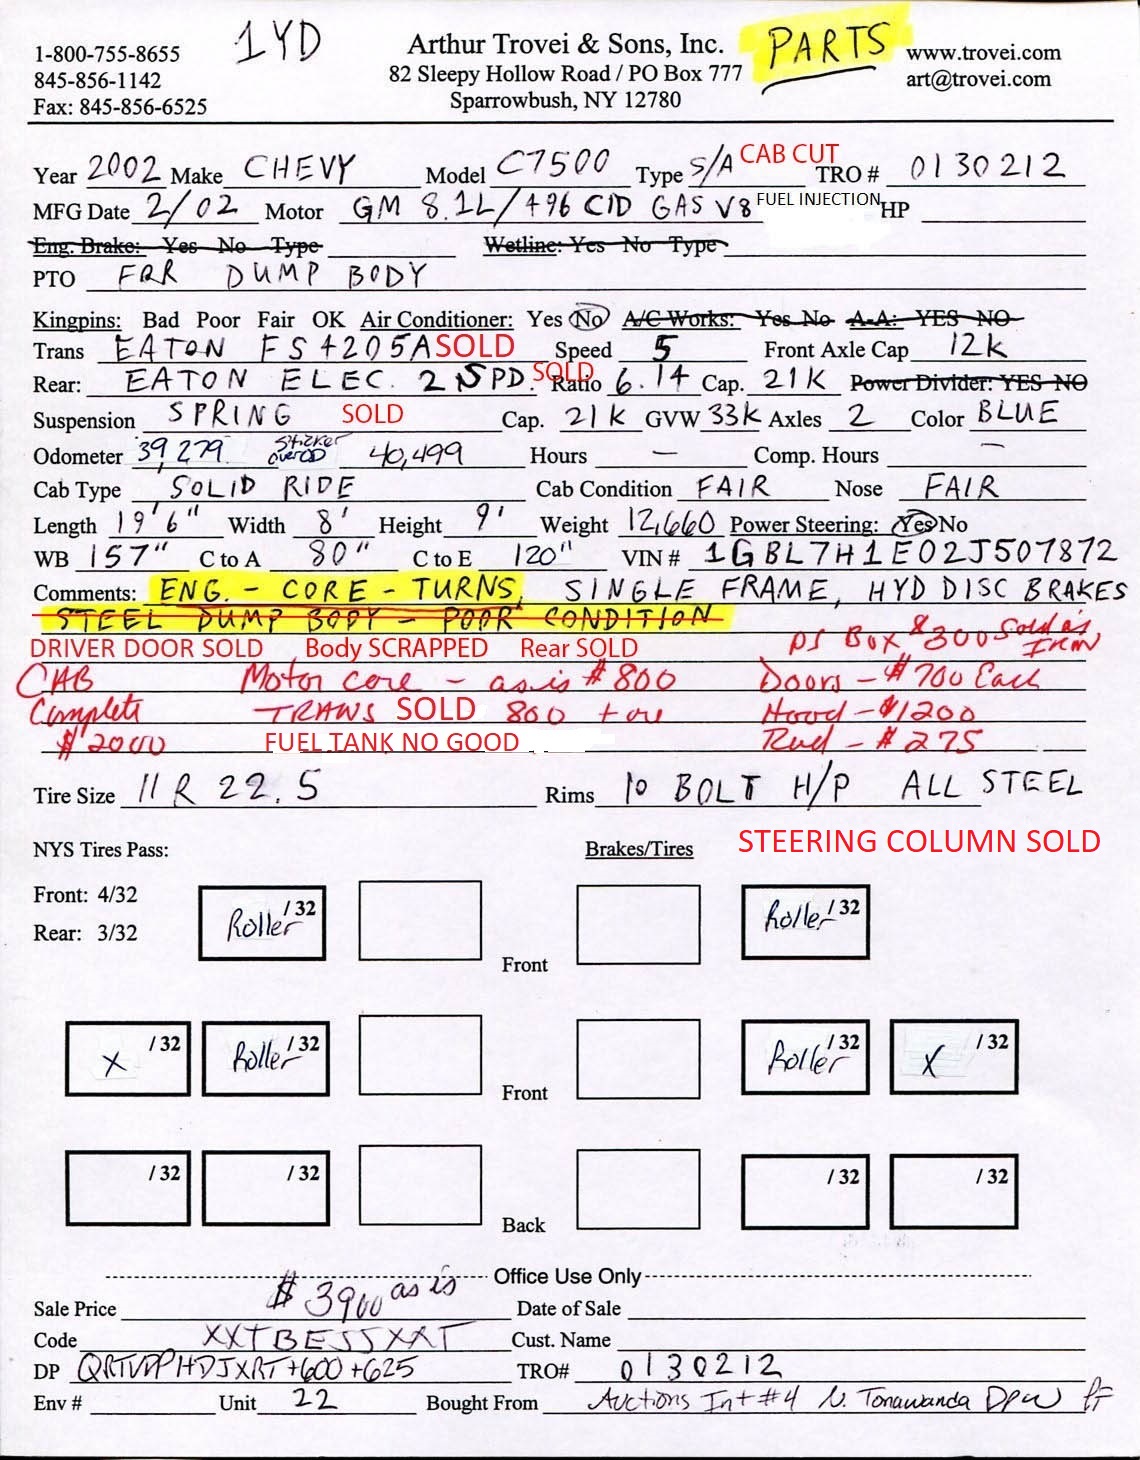 1-800-755-8655 1YD Arthur Trovei & Sons, Inc. PARTS www.trovei.com
845-856-1142 82 Sleepy Hollow Road / PO Box 777 art@trovei.com
Fax: 845-856-6525 Sparrowbush, NY 12780
Year 2002 Make CHEVY Model C7500 Type S/A CAB CUT TRO # 0130212
MFG Date 2/02 Motor GM 8.1L/496 CID GAS V8 FUEL INJECTION HP
Eng. Brake: Yes No Type Wetline: Yes No Type
PTO FOR DUMP BODY
Kingpins: Bad Poor Fair OK Air Conditioner: Yes No A/C Works: Yes No A-A: YES NO
Trans EATON FS4205A SOLD Speed 5 Front Axle Cap 12K
Rear: EATON ELEC. 2 SPD. SOLD Ratio 6.14 Cap. 21K Power Divider: YES NO
Suspension SPRING SOLD Cap. 21K GVW 33K Axles 2 Color BLUE
Odometer 39,279 sticker over OD 40,499 Hours — Comp. Hours —
Cab Type SOLID RIDE Cab Condition FAIR Nose FAIR
Length 19'6" Width 8' Height 9' Weight 12,660 Power Steering: Yes No
WB 157" C to A 80" C to E 120" VIN # 1GBL7H1E02J507872
Comments: ENG. - CORE - TURNS, SINGLE FRAME, HYD DISC BRAKES
STEEL DUMP BODY - POOR CONDITION
DRIVER DOOR SOLD Body SCRAPPED Rear SOLD PS Box $300 Sold as Iron
CAB Motor core - as is $800 Doors - $700 Each
Complete TRANS SOLD 800 + ore Hood - $1200
$2000 FUEL TANK NO GOOD Rad - $275
Tire Size 11 R 22.5 Rims 10 BOLT H/P ALL STEEL
STEERING COLUMN SOLD
NYS Tires Pass: Brakes/Tires
Front: 4/32
Rear: 3/32
Roller /32 Roller /32
Front
X /32 Roller /32 Roller /32 X /32
Front
/32 /32 /32 /32
Back
Office Use Only
Sale Price $3900 as is Date of Sale
Code XXTBESJXRT Cust. Name
DP QRTVDPHDJXRT+600+625 TRO# 0130212
Env # Unit 22 Bought From Auctions Int #4 N. Tonawanda DPW